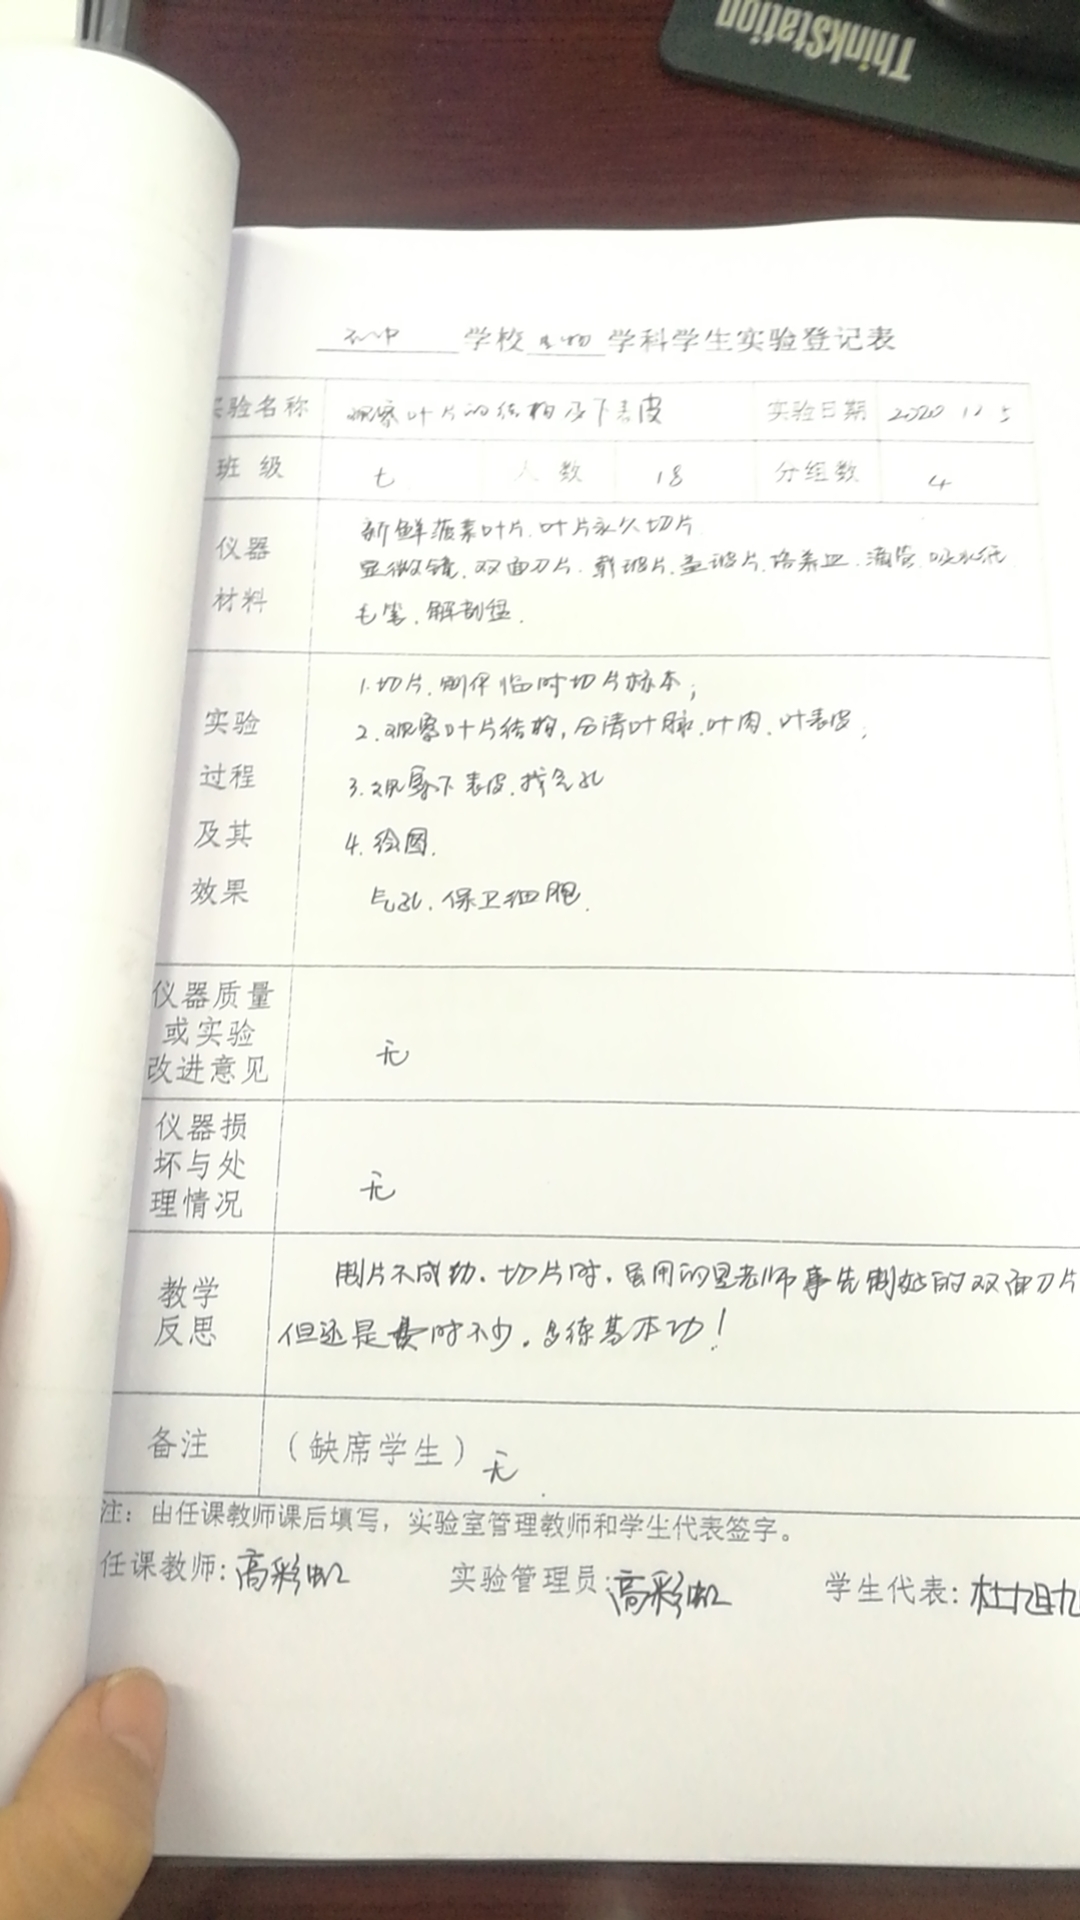 ThinkStation
二中 学校 生物 学科学生实验登记表
实验名称 观察叶片的结构及下表皮 实验日期 2020 12 5
班级 七 人数 18 分组数 4
仪器材料
新鲜菠菜叶片、叶片永久切片
显微镜、双面刀片、载玻片、盖玻片、培养皿、滴管、吸水纸
毛笔、解剖盘.
实验过程及其效果
1.切片、制作临时切片标本;
2.观察叶片结构,分清叶脉、叶肉、叶表皮.
3.观察下表皮、找气孔
4.绘图.
气孔、保卫细胞.
仪器质量或实验改进意见 无
仪器损坏与处理情况 无
教学反思
制片不成功、切片时,虽用的是老师事先制好的双面刀片
但还是费时不少,多练基本功!
备注 (缺席学生) 无
注:由任课教师课后填写,实验室管理教师和学生代表签字。
任课教师:高彩虹 实验管理员:高彩虹 学生代表:杜旭